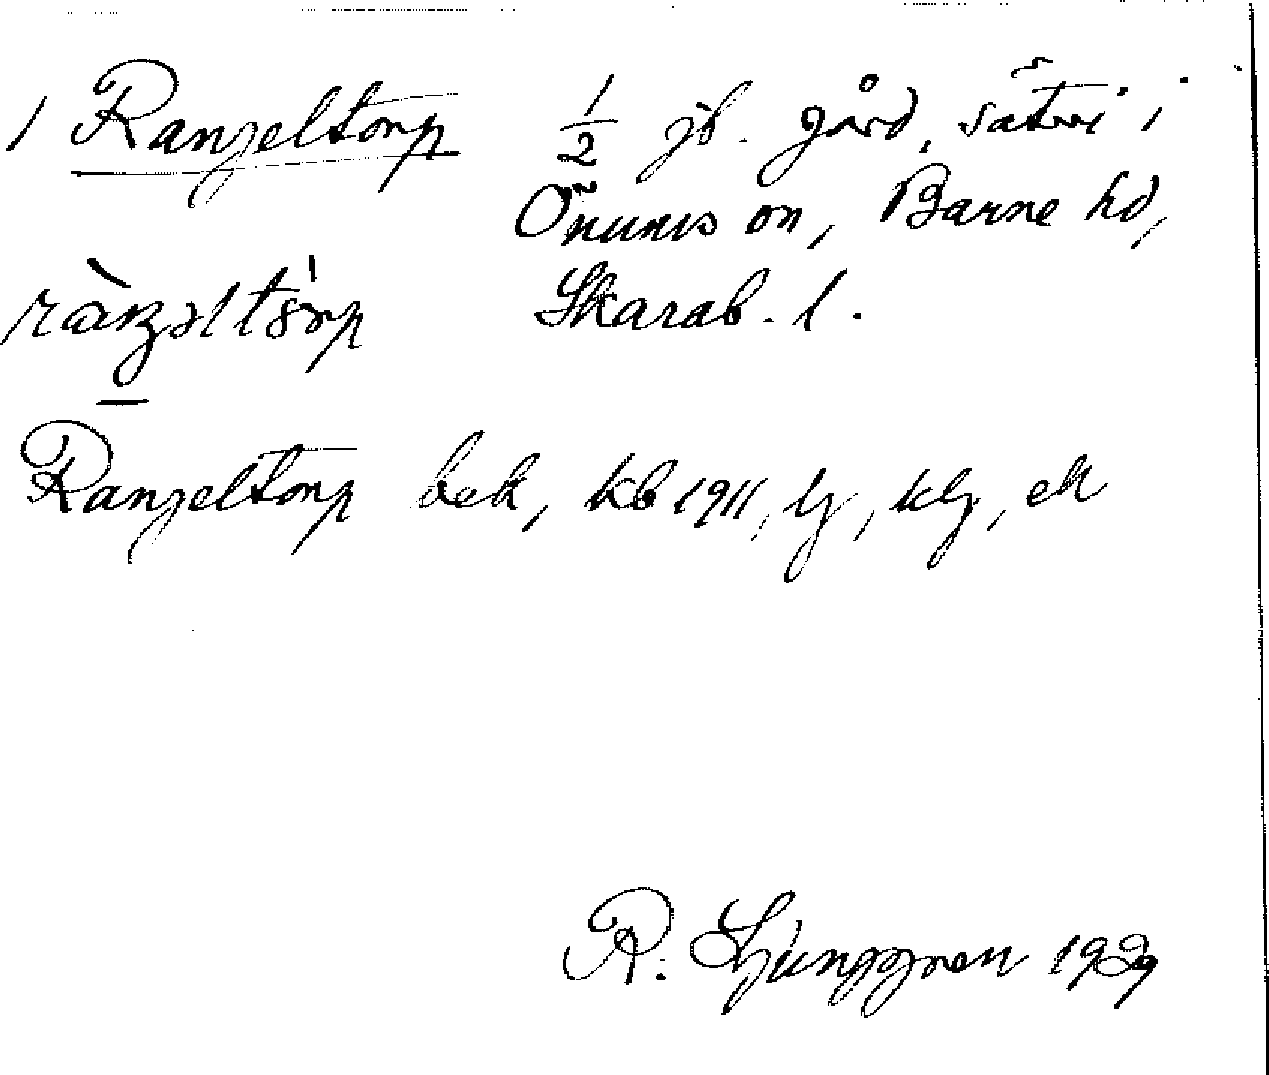 1 Rangeltorp 1/2 jb. gård, säteri i
Önums sn, Barne hd,
Skarab. l.
Rangeltorp bek, kb 1911, lj, klj, ek
R. Ljunggren 1929